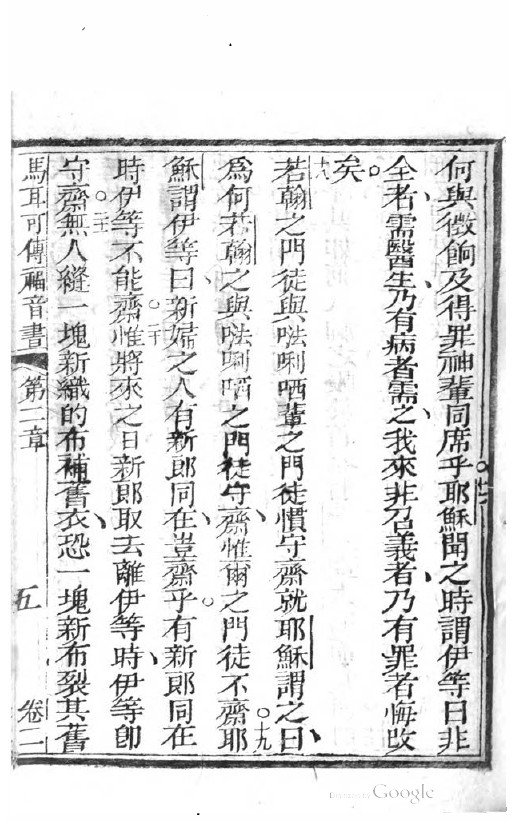 何與徵餉及得罪神輩同席乎。十七耶穌聞之時謂伊等曰非
全者、需醫生、乃有病者需之、我來非召義者、乃有罪者悔改
矣。
十八
若翰之門徒與㘔唎哂輩之門徒慣守齋就耶穌謂之曰、
爲何若翰之與㘔唎哂之門徒守齋、惟爾之門徒不齋。十九耶
穌謂伊等曰、新婦之人有新郎同在、豈齋乎。有新郎同在
時伊等不能齋。二十惟將來之日新郎取去離伊等時、伊等卽
守齋。二一無人縫一塊新織的布補舊衣、恐一塊新布裂其舊
馬耳可傳福音書 第二章 五 卷二
Digitized by Google